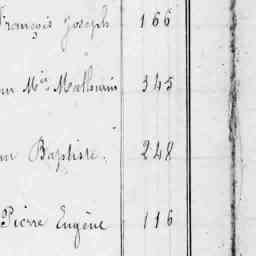 François Joseph 166
Mathurin 345
Baptiste. 248
Pierre Eugène 116